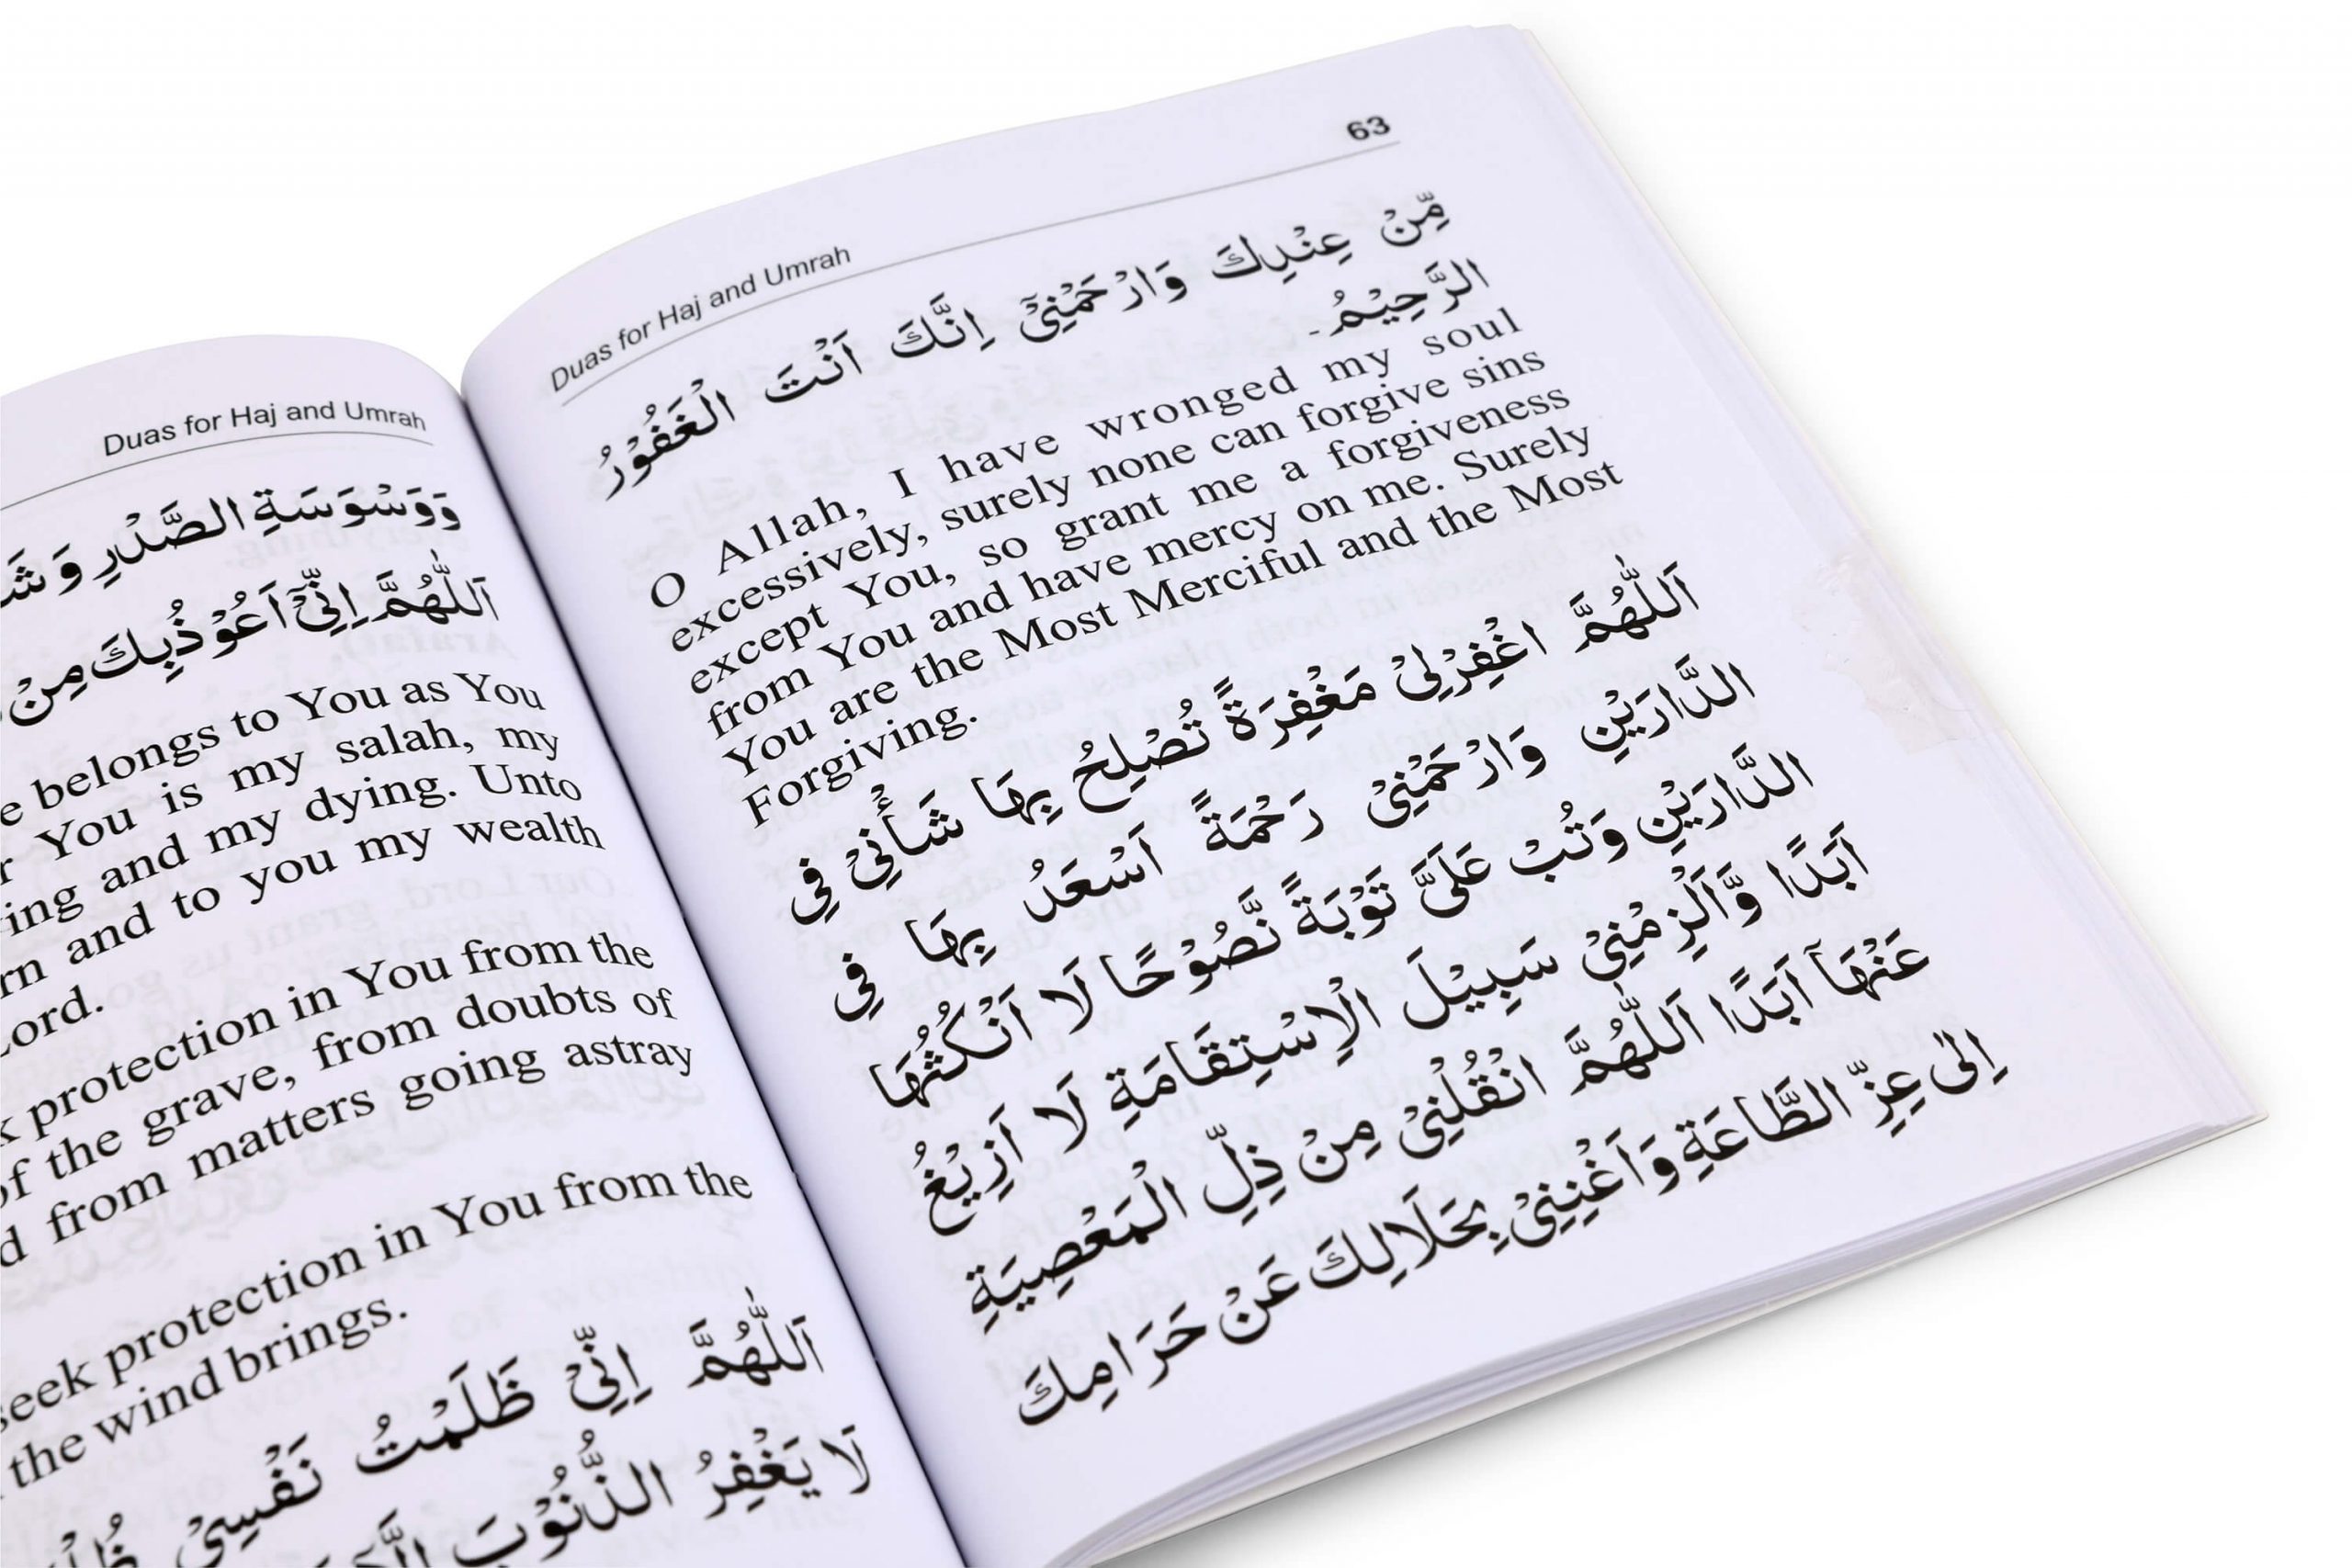 Duas for Haj and Umrah
وَوَسْوَسَةِ الصَّدْرِ وَ
اَللّٰهُمَّ اِنِّیْۤ اَعُوْذُبِكَ مِنْ
belongs to You as You
You is my salah, my
and my dying. Unto
and to you my wealth
protection in You from the
the grave, from doubts of
from matters going astray
protection in You from the
the wind brings.
اَللّٰهُمَّ اِنِّیْ ظَلَمْتُ نَفْسِیْ
لَا یَغْفِرُ الذُّنُوْبَ
63
Duas for Haj and Umrah
مِّنْ عِنْدِكَ وَارْحَمْنِیْۤ اِنَّكَ اَنْتَ الْغَفُوْرُ
الرَّحِیْمُ۔
O Allah, I have wronged my soul
excessively, surely none can forgive sins
except You, so grant me a forgiveness
from You and have mercy on me. Surely
You are the Most Merciful and the Most
Forgiving.
اَللّٰهُمَّ اغْفِرْلِیْ مَغْفِرَةً تُصْلِحُ بِهَا شَأْنِیْ فِی
الدَّارَیْنِ وَارْحَمْنِیْ رَحْمَةً اَسْعَدُ بِهَا فِی
الدَّارَیْنِ وَتُبْ عَلَیَّ تَوْبَةً نَّصُوْحًا لَا اَنْكُثُهَا
اَبَدًا وَّاَلْزِمْنِیْ سَبِیْلَ الْاِسْتِقَامَةِ لَا اَزِیْغُ
عَنْهَاۤ اَبَدًا اَللّٰهُمَّ انْقُلْنِیْ مِنْ ذِلِّ الْمَعْصِیَةِ
اِلٰی عِزِّ الطَّاعَةِ وَاَغْنِنِیْ بِحَلَالِكَ عَنْ حَرَامِكَ